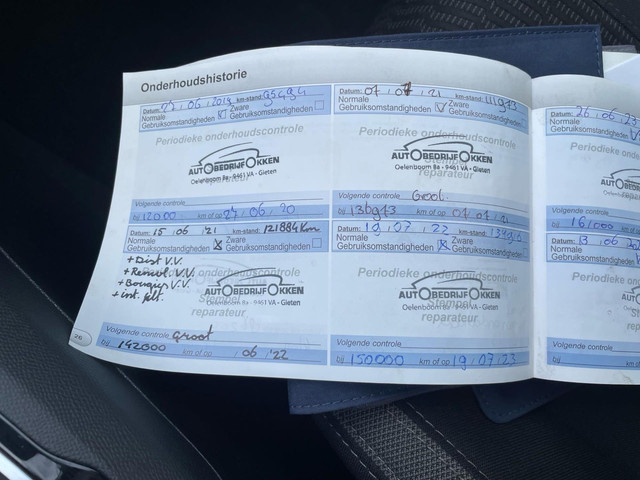 Onderhoudshistorie
Datum: 27.06.2019 km-stand: 95494
Normale Gebruiksomstandigheden Zware Gebruiksomstandigheden
Periodieke onderhoudscontrole
AUTOBEDRIJF OKKEN
Oelenboom 8a - 9461 VA - Gieten
reparateur
Volgende controle
bij 120000 km of op 27.06.20
Datum: 07.07.21 km-stand: 111973
Normale Gebruiksomstandigheden Zware Gebruiksomstandigheden
Periodieke onderhoudscontrole
AUTOBEDRIJF OKKEN
Oelenboom 8a - 9461 VA - Gieten
reparateur
Volgende controle Groot.
bij 136973 km of op 07.07.21
Datum: 15.06.'21 121884 Km
Normale Gebruiksomstandigheden Zware Gebruiksomstandigheden
+ Dist V.V.
+ Remvl. V.V.
+ Bougies V.V.
+ int. filt.
Periodieke onderhoudscontrole
AUTOBEDRIJF OKKEN
Oelenboom 8a - 9461 VA - Gieten
Stempel
reparateur
Volgende controle Groot
bij 142000 km of op .06.'22
Datum: 19.07.22 km-stand:
Normale Gebruiksomstandigheden Zware Gebruiksomstandigheden
Periodieke onderhoudscontrole
AUTOBEDRIJF OKKEN
Oelenboom 8a - 9461 VA - Gieten
Stempel
reparateur
Volgende controle
bij 150000 km of op 19.07.23
Datum: 26.06.23
Normale Gebruiksomstandigheden
Periodieke
AUTOBEDRIJF
Oelenboom
Volgende controle
bij 161000 km
Datum: 13.06
Normale Gebruiksomstandigheden
Periodieke
AUTOBEDRIJF
Oelenboom
Volgende controle
bij